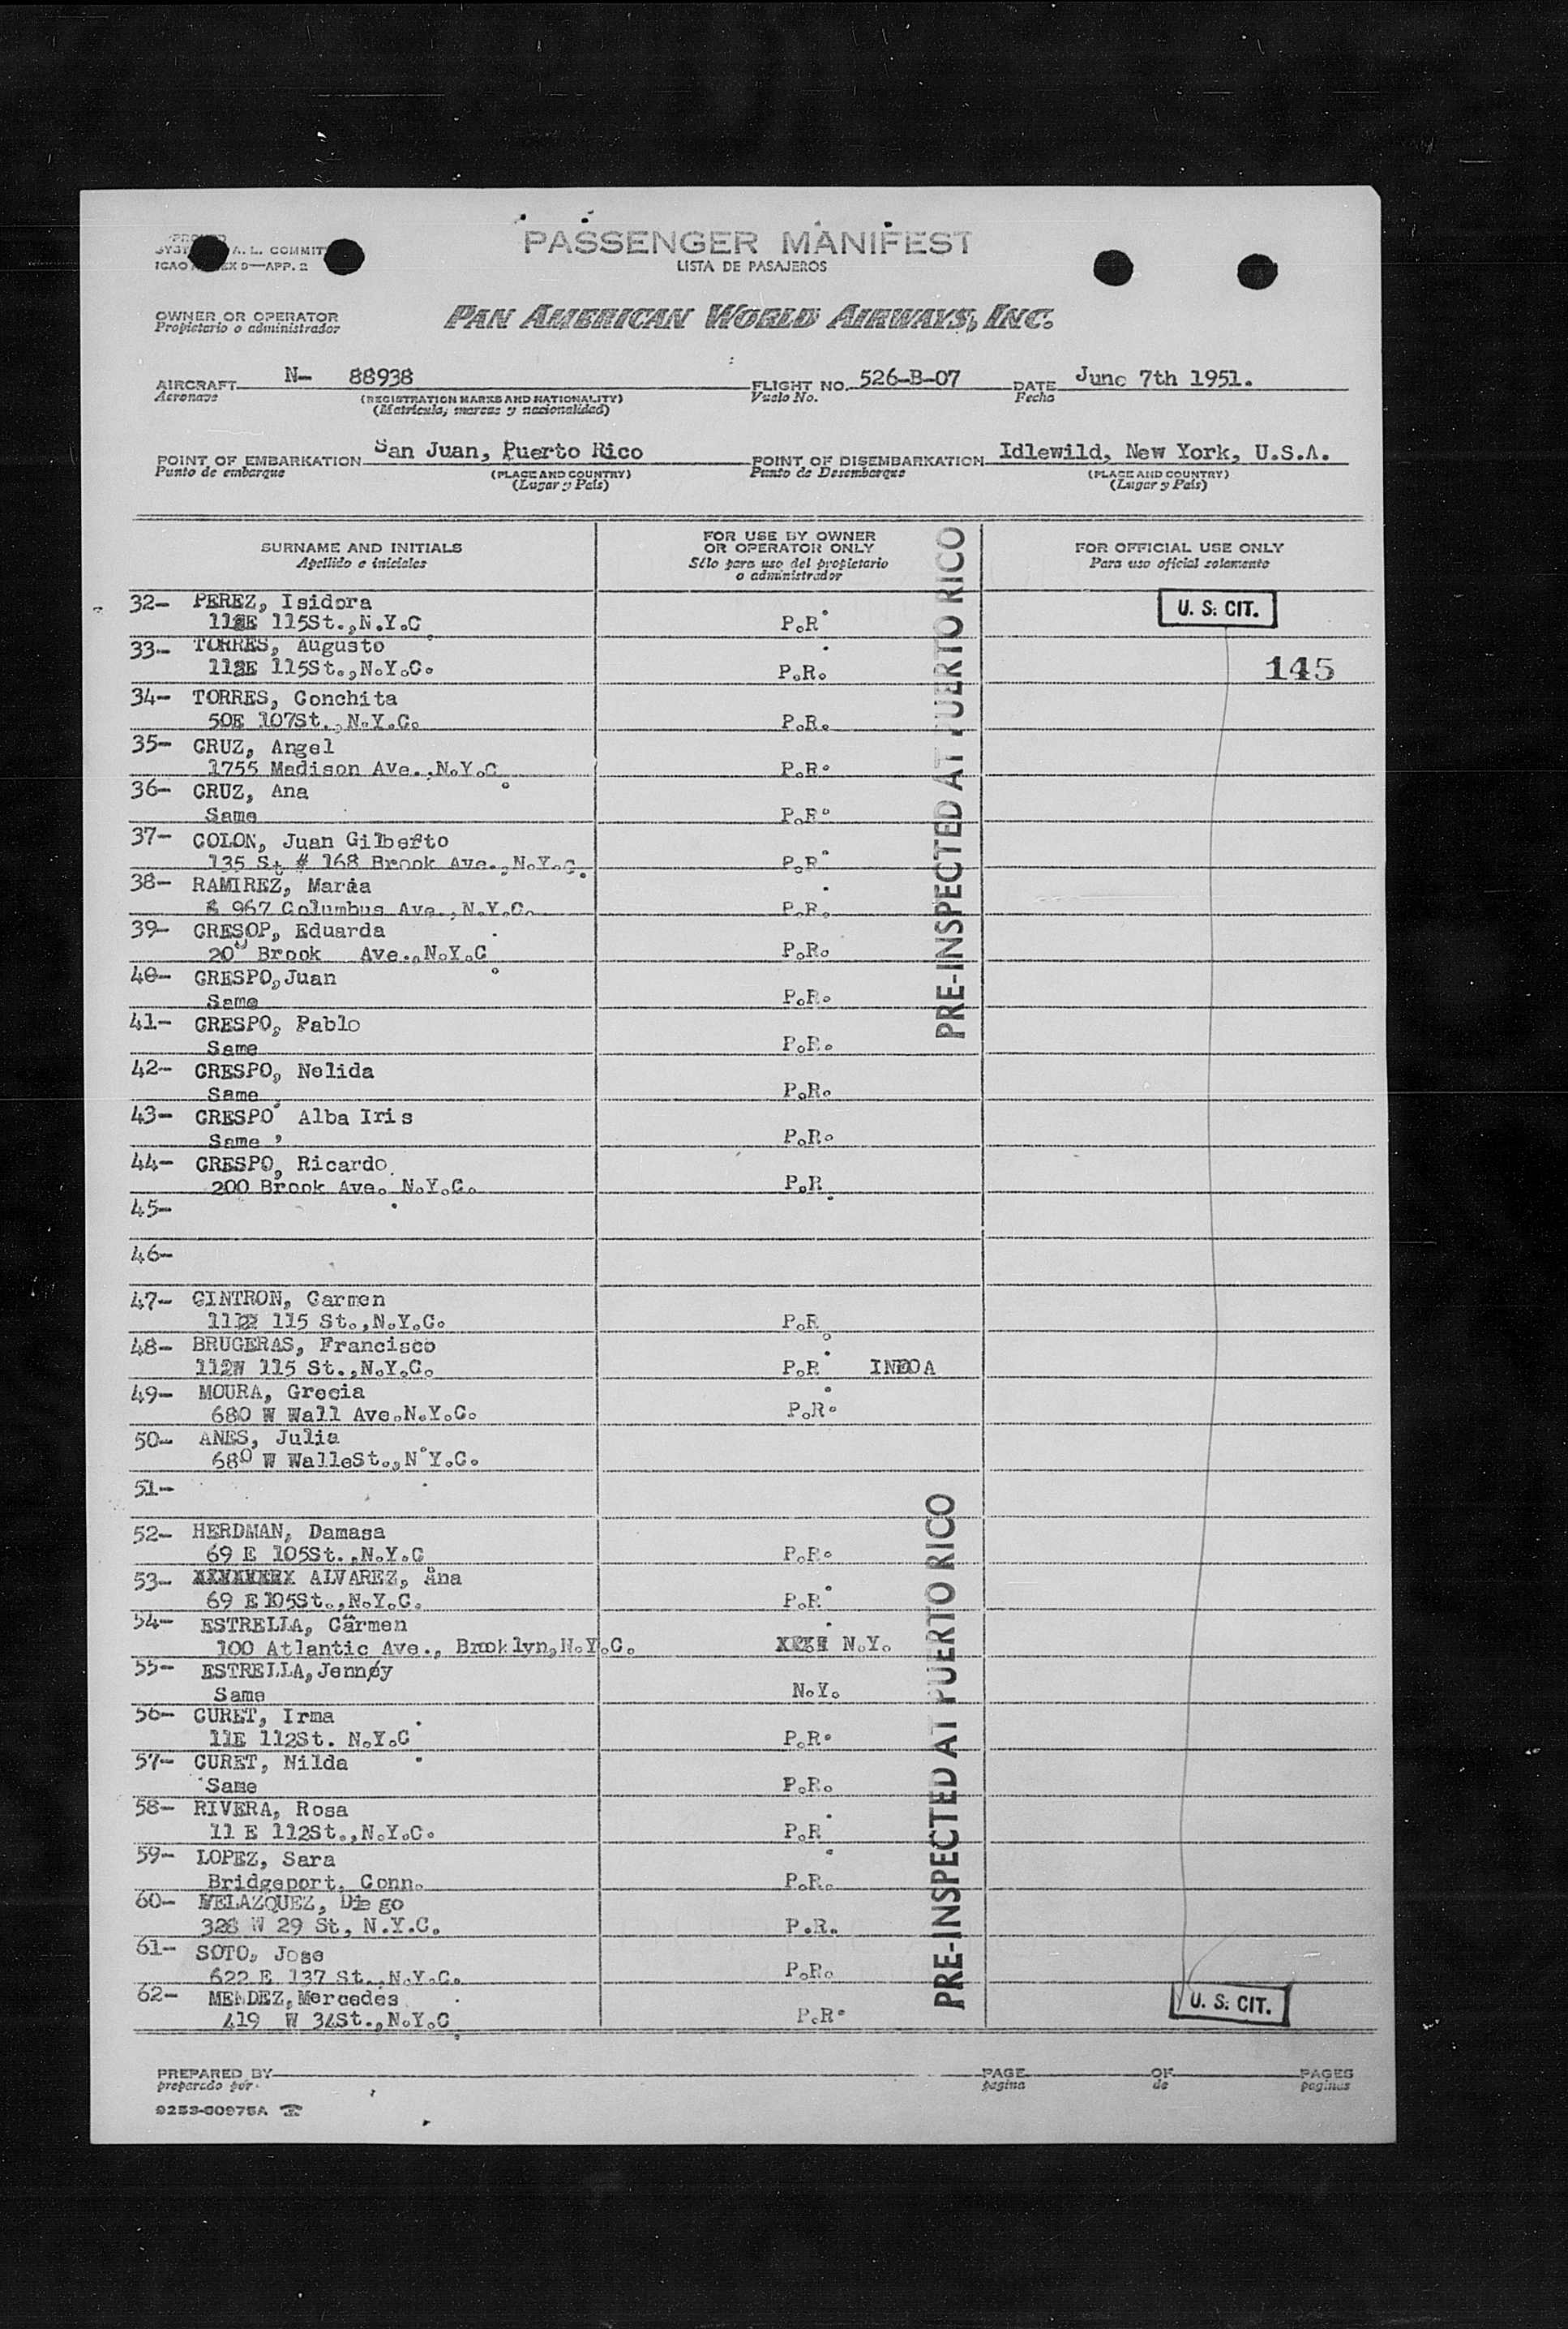 PASSENGER MANIFEST
LISTA DE PASAJEROS
A. L. COMMIT
ICAO D—APP. 2
OWNER OR OPERATOR
Propietario o administrador
PAN AMERICAN WORLD AIRWAYS, INC.
AIRCRAFT N- 88938 FLIGHT NO. 526-B-07 DATE June 7th 1951.
Aeronave (REGISTRATION MARKS AND NATIONALITY) Vuelo No. Fecha
(Matricula, marcas y nacionalidad)
POINT OF EMBARKATION San Juan, Puerto Rico POINT OF DISEMBARKATION Idlewild, New York, U.S.A.
Punto de embarque (PLACE AND COUNTRY) Punto de Desembarque (PLACE AND COUNTRY)
(Lugar y Pais) (Lugar y Pais)
SURNAME AND INITIALS FOR USE BY OWNER OR OPERATOR ONLY FOR OFFICIAL USE ONLY
Apellido e iniciales Sólo para uso del propietario o administrador Para uso oficial solamente
PRE-INSPECTED AT PUERTO RICO
32- PEREZ, Isidora U. S. CIT.
115St.,N.Y.C P.R.
33- TORRES, Augusto
115St.,N.Y.C. P.R. 145
34- TORRES, Conchita
50E 107St.,N.Y.C. P.R.
35- CRUZ, Angel
1755 Madison Ave.,N.Y.C P.R.
36- CRUZ, Ana
Same P.R.
37- COLON, Juan Gilberto
135 St # 168 Brook Ave.,N.Y.C. P.R.
38- RAMIREZ, Maria
967 Columbus Ave.,N.Y.C. P.R.
39- CRESOP, Eduarda
200 Brook Ave.,N.Y.C P.R.
40- CRESPO,Juan
Same P.R.
41- CRESPO, Pablo
Same P.R.
42- CRESPO, Nelida
Same P.R.
43- CRESPO Alba Iris
Same , P.R.
44- CRESPO, Ricardo
200 Brook Ave. N.Y.C. P.R.
45-
46-
47- CINTRON, Carmen
115 St.,N.Y.C. P.R.
48- BRUGERAS, Francisco
112W 115 St.,N.Y.C. P.R.
49- MOURA, Grecia
680 W Wall Ave.N.Y.C. P.R.
50- ANES, Julia
680 W WalleSt.,N.Y.C.
51-
PRE-INSPECTED AT PUERTO RICO
52- HERDMAN, Damasa
69 E 105St.,N.Y.C P.R.
53- ALVAREZ, Ana
69 E 105St.,N.Y.C. P.R.
54- ESTRELLA, Carmen
100 Atlantic Ave., Brooklyn,N.Y.C. N.Y.
55- ESTRELLA,Jenney
Same N.Y.
56- CURET, Irma
11E 112St. N.Y.C P.R.
57- CURET, Nilda
Same P.R.
58- RIVERA, Rosa
11 E 112St.,N.Y.C. P.R.
59- LOPEZ, Sara
Bridgeport, Conn. P.R.
60- VELAZQUEZ, Diego
328 W 29 St, N.Y.C. P.R.
61- SOTO, Jose
622 E 137 St.,N.Y.C. P.R.
62- MENDEZ,Mercedes U. S. CIT.
419 W 34St.,N.Y.C P.R.
PREPARED BY PAGE OF PAGES
preparado por pagina de paginas
9253-00975A